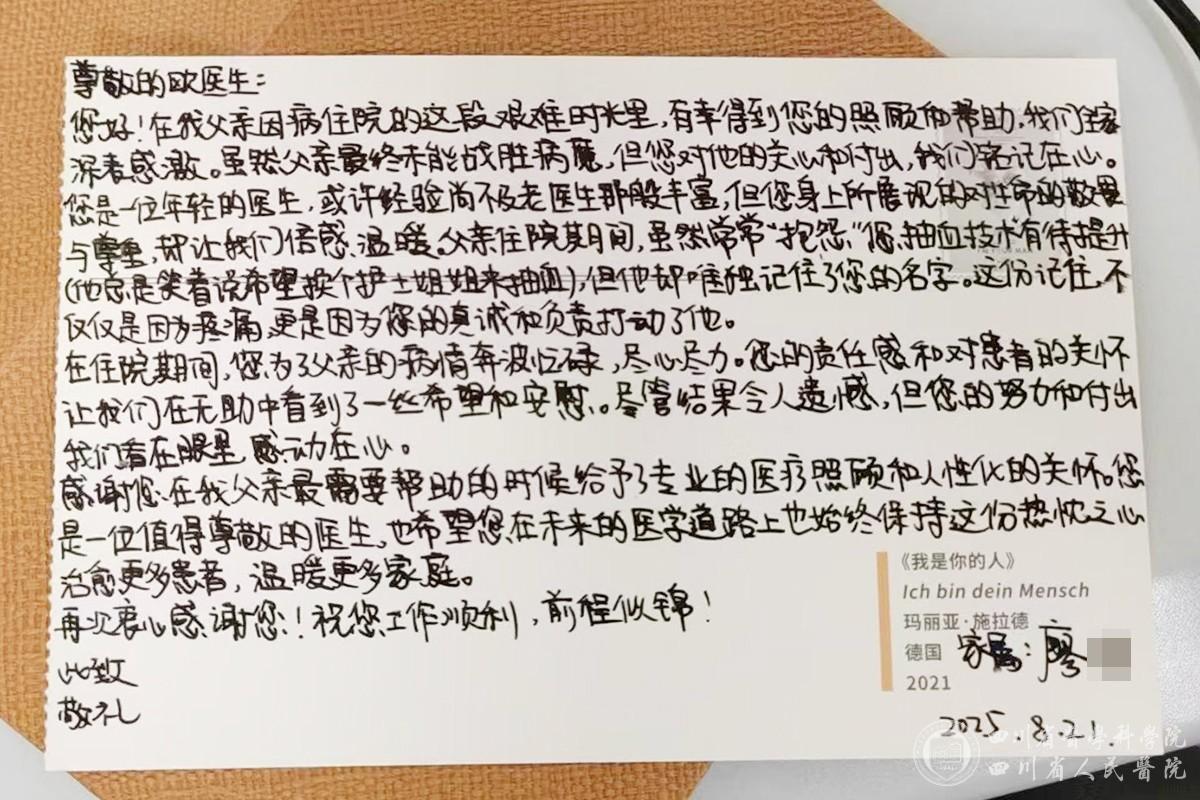 尊敬的欧医生：
您好！在我父亲因病住院的这段艰难时光里，有幸得到您的照顾和帮助，我们全家
深表感激。虽然父亲最终未能战胜病魔，但您对他的关心和付出，我们铭记在心。
您是一位年轻的医生，或许经验尚不及老医生那般丰富，但您身上所展现的对生命的敬畏
与尊重，却让我们倍感温暖。父亲住院期间，虽然常常“抱怨”您抽血技术有待提升
（他总是笑着说希望换个护士姐姐来抽血），但他却唯独记住了您的名字。这份记住，不
仅仅是因为疼痛，更是因为您的真诚和负责打动了他。
在住院期间，您为了父亲的病情奔波忙碌，尽心尽力。您的责任感和对患者的关怀
让我们在无助中看到了一丝希望和安慰。尽管结果令人遗憾，但您的努力和付出
我们看在眼里，感动在心。
感谢您在我父亲最需要帮助的时候给予了专业的医疗照顾和人性化的关怀。您
是一位值得尊敬的医生，也希望您在未来的医学道路上也始终保持这份热忱之心
治愈更多患者，温暖更多家庭。
再次衷心感谢您！祝您工作顺利，前程似锦！
此致
敬礼
《我是你的人》
Ich bin dein Mensch
玛丽亚·施拉德
德国
2021
家属：廖
2025.8.21.
四川省医学科学院
四川省人民医院